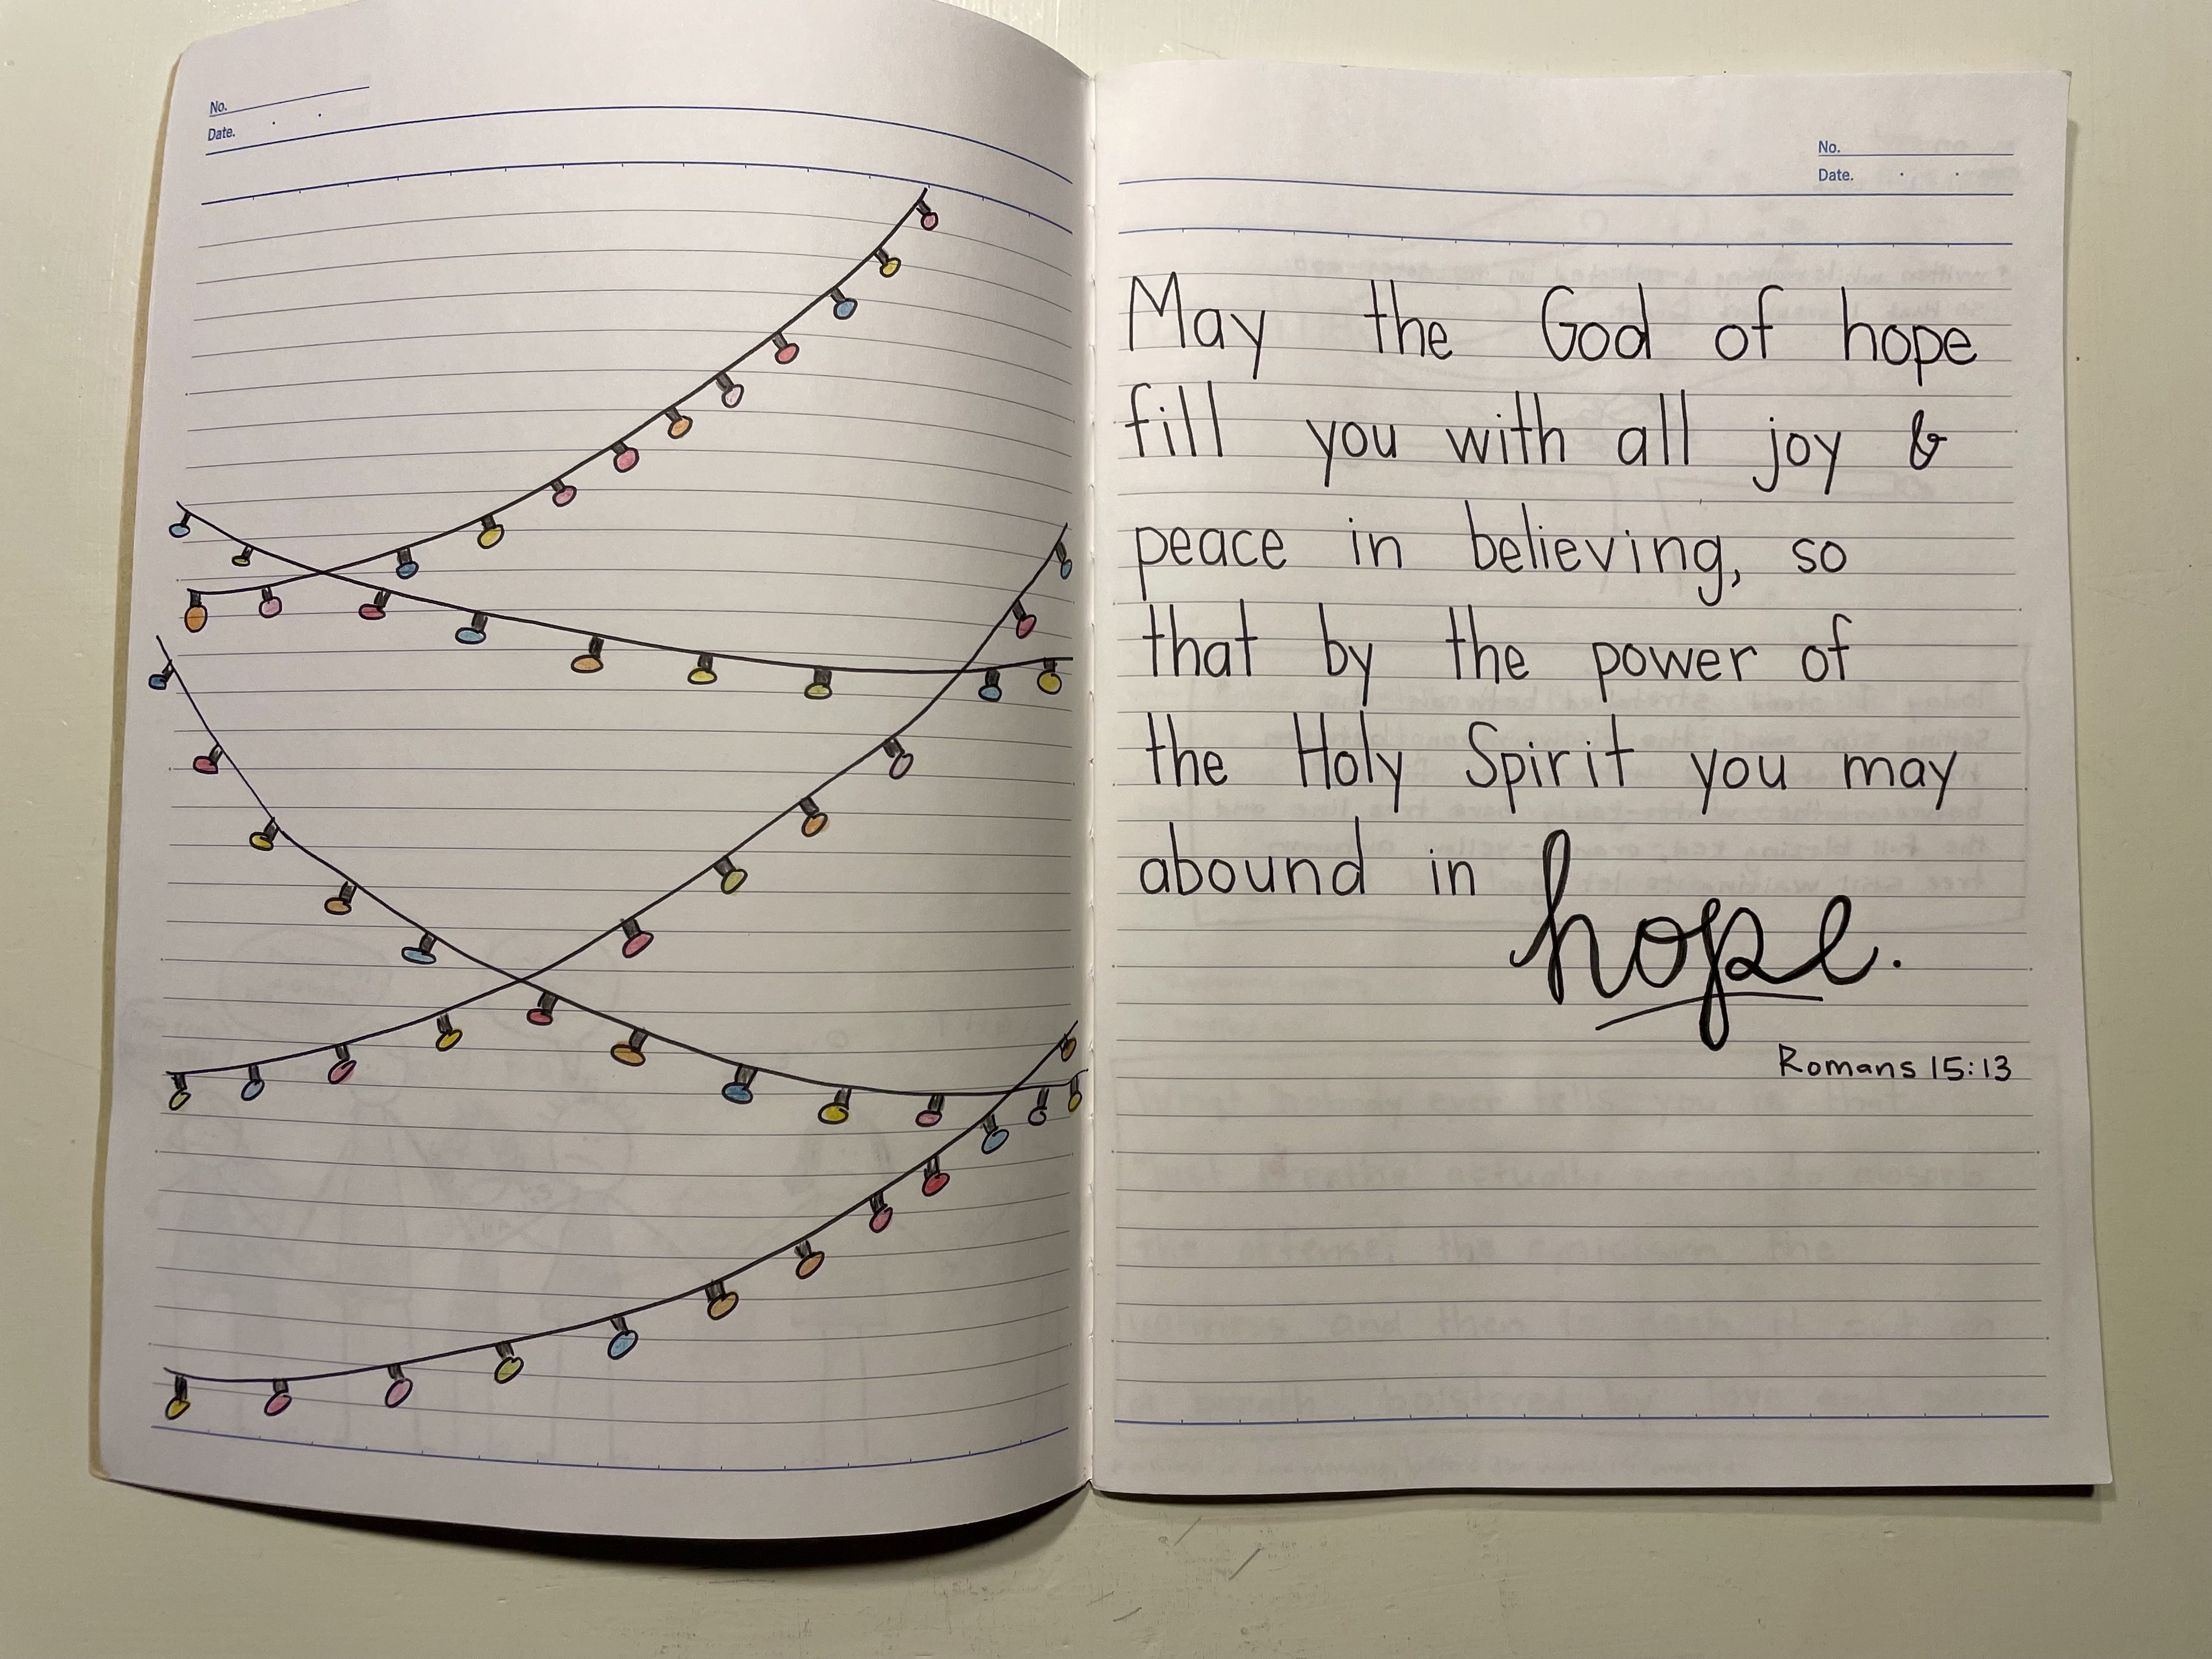 No.
Date.
No.
Date.
May the God of hope
fill you with all joy &
peace in believing, so
that by the power of
the Holy Spirit you may
abound in hope.
Romans 15:13